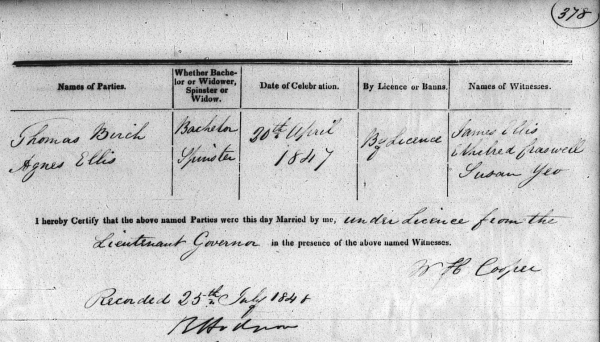 378
Names of Parties. Whether Bache- lor or Widower, Spinster or Widow. Date of Celebration. By Licence or Banns. Names of Witnesses.
Thomas Birch Bachelor 20th April By Licence James Ellis
Agnes Ellis Spinster 1847 Ethelred Craswell
Susan Yeo
I hereby Certify that the above named Parties were this day Married by me, under Licence from the
Lieutenant Governor in the presence of the above named Witnesses.
W H Cooper
Recorded 25th July 1848